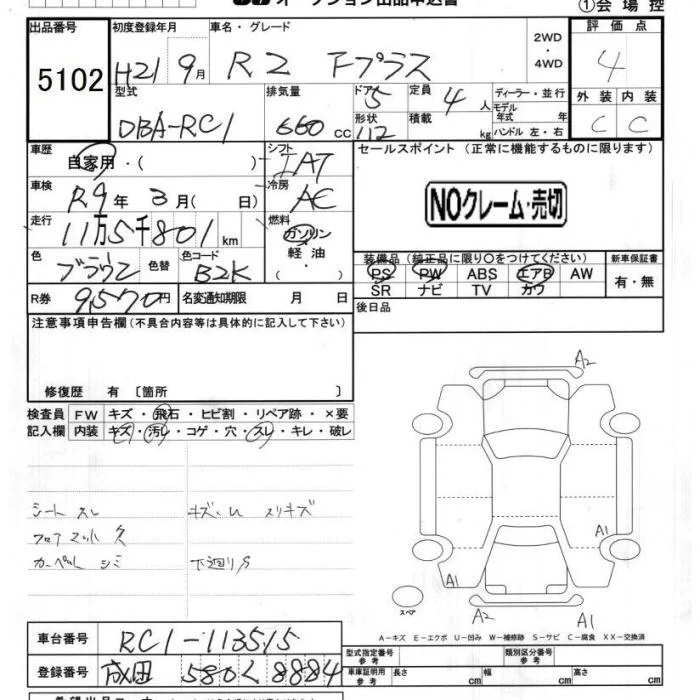 オークション出品申込書 ①会場控
出品番号 初度登録年月 車名・グレード 2WD ・ 4WD 評価点
5102 H21 9月 R2 Fプラス 4
型式 排気量 ドア 定員 ディーラー・並行 外装 内装
DBA-RC1 660 cc 5 4人 モデル年式 年 C C
形状 112 積載 kg ハンドル 左・右
車歴 自家用・( ) シフト IAT セールスポイント (正常に機能するものに限ります)
車検 R9年3月( 日) 冷房 AC
NOクレーム・売切
走行 11万5千801km 燃料 ガソリン 軽油 ( ・ )
色 ブラウン 色替 色コード B2K
装備品 (純正品に限り〇をつけてください) 新車保証書
PS PW ABS エアB AW 有・無
SR ナビ TV カワ
R券 9570円 名変通知期限 月 日 後日品
注意事項申告欄(不具合内容等は具体的に記入して下さい)
修復歴 有 〔箇所 〕
検査員 FW キズ・飛石・ヒビ割・リペア跡・×要
記入欄 内装 キズ・汚レ・コゲ・穴・スレ・キレ・破レ
シートスレ キズ・U スリキズ
フロアマット欠
カーペットシミ 下廻りS
A2
A1
A1
A2 A1
スペア
A－キズ E－エクボ U－凹み W－補修跡 S－サビ C－腐食 XX－交換済
車台番号 RC1-113515
登録番号 成田 580 く 8884
型式指定番号 参考 類別区分番号 参考
車庫証明用 参考 長さ cm 幅 cm 高さ cm